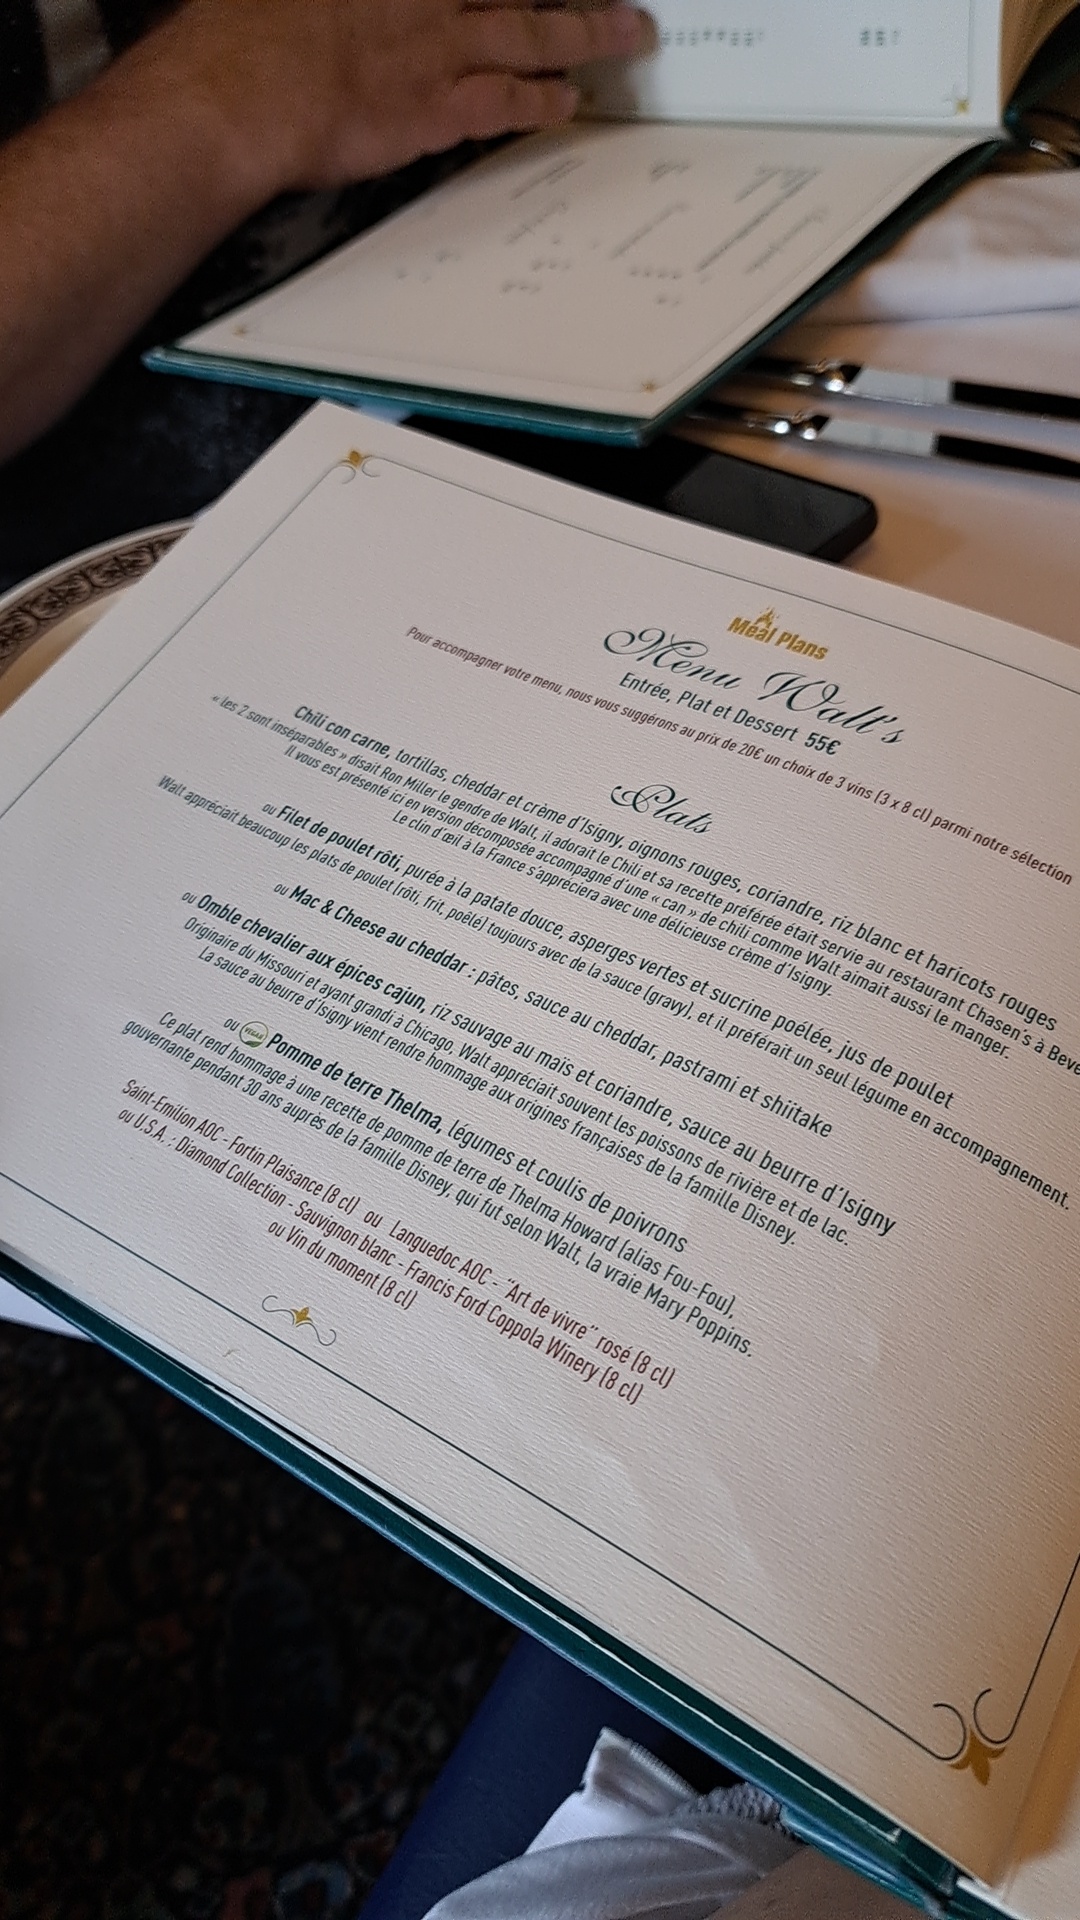 Meal Plans
Menu Walt's
Entrée, Plat et Dessert 55€
Pour accompagner votre menu, nous vous suggérons au prix de 20€ un choix de 3 vins (3 x 8 cl) parmi notre sélection
Plats
Chili con carne, tortillas, cheddar et crème d'Isigny, oignons rouges, coriandre, riz blanc et haricots rouges
« les 2 sont inséparables » disait Ron Miller le gendre de Walt, il adorait le Chili et sa recette préférée était servie au restaurant Chasen's à
Il vous est présenté ici en version décomposée accompagné d'une « can » de chili comme Walt aimait aussi le manger.
Le clin d'œil à la France s'appréciera avec une délicieuse crème d'Isigny.
ou Filet de poulet rôti, purée à la patate douce, asperges vertes et sucrine poêlée, jus de poulet
Walt appréciait beaucoup les plats de poulet (rôti, frit, poêlé) toujours avec de la sauce (gravy), et il préférait un seul légume en accompagnement.
ou Mac & Cheese au cheddar : pâtes, sauce au cheddar, pastrami et shiitake
ou Omble chevalier aux épices cajun, riz sauvage au maïs et coriandre, sauce au beurre d'Isigny
Originaire du Missouri et ayant grandi à Chicago, Walt appréciait souvent les poissons de rivière et de lac.
La sauce au beurre d'Isigny vient rendre hommage aux origines françaises de la famille Disney.
ou VEGAN Pomme de terre Thelma, légumes et coulis de poivrons
Ce plat rend hommage à une recette de pomme de terre de Thelma Howard (alias Fou-Fou),
gouvernante pendant 30 ans auprès de la famille Disney, qui fut selon Walt, la vraie Mary Poppins.
Saint-Emilion AOC - Fortin Plaisance (8 cl) ou Languedoc AOC - "Art de vivre" rosé (8 cl)
ou U.S.A. : Diamond Collection - Sauvignon blanc - Francis Ford Coppola Winery (8 cl)
ou Vin du moment (8 cl)